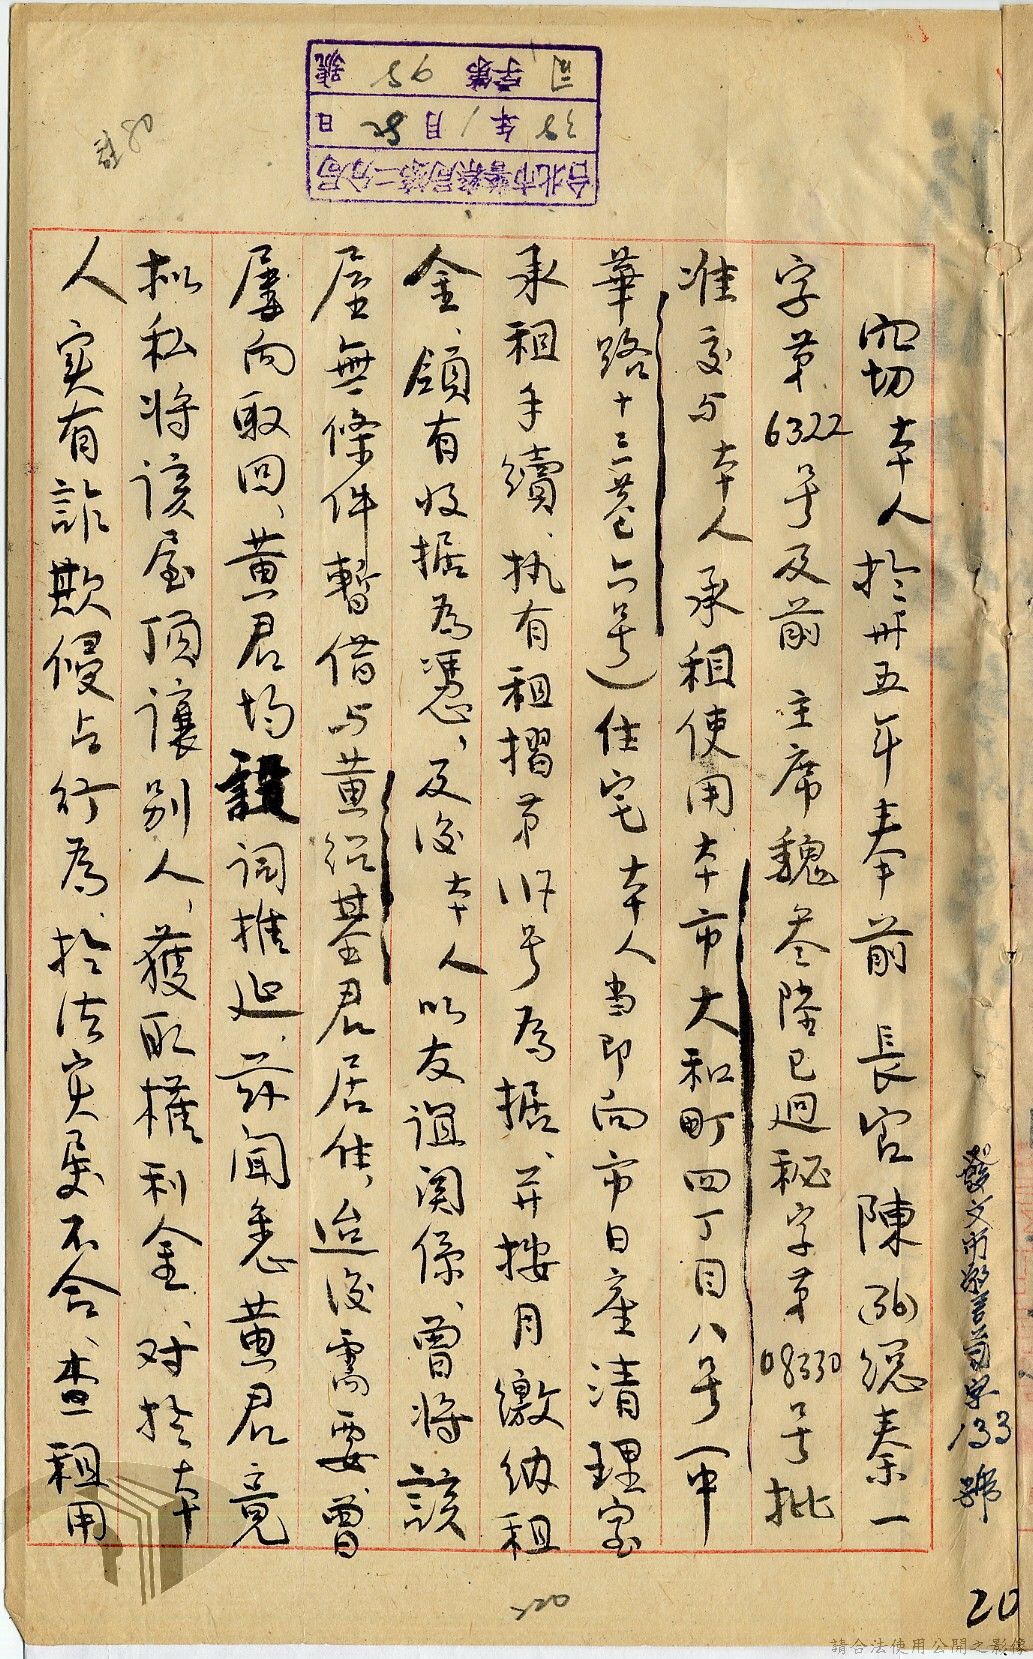 竊切本人於卅五年奉前 長官陳酉總秦一
字第6322号及前 主席魏叁陸已迴秘字第08330号批
准交与本人承租使用本市大和町四丁目八号(中
華路十三巷六号)住宅本人当即向市日產清理室
承租手續、执有租摺第 号為据、并按月繳納租
金、領有收据為憑、及後本人以友誼関係、曾將該
屋無條件暫借与黄紹基君居住、迨後需要、曾
屢向取回、黄君均設詞推延、兹聞悉黄君竟
拟私将該屋頂讓别人、獲取權利金、对於本
人实有詐欺侵占行為、於法实屬不合、查租用
發文 警 字133號
台北市警察局第二分局
38年1月 日
司字第95號
20
220
請合法使用公開之影像